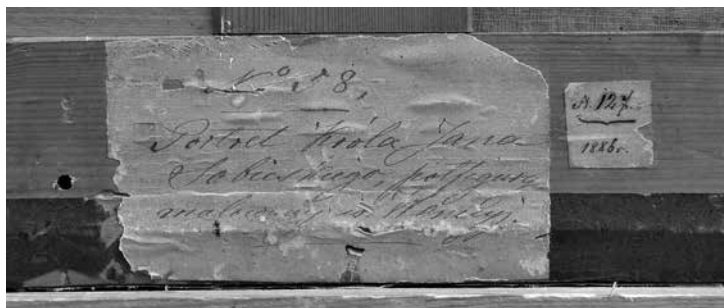 No 58,
Portret króla Jana
Sobieskiego, półfigury
malowany w
N. 127.
1886 r.